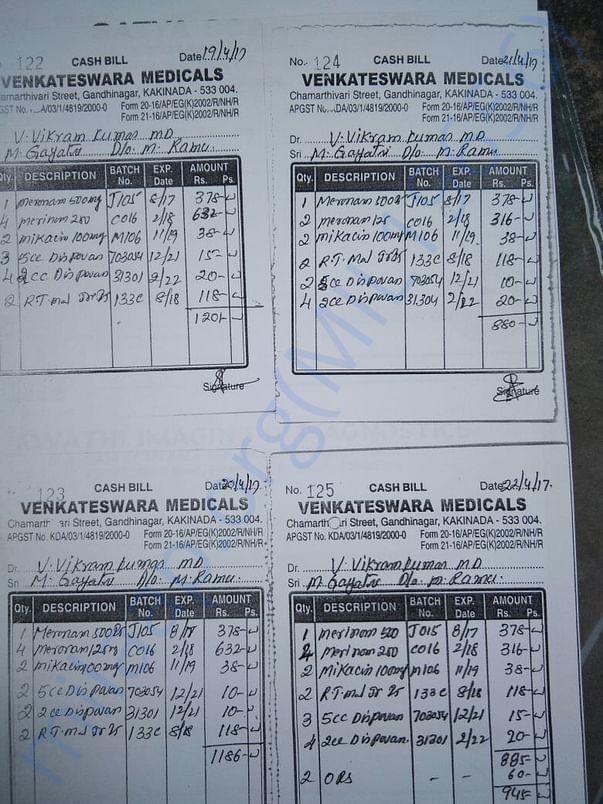 122 CASH BILL Date 19/4/17
VENKATESWARA MEDICALS
Chamarthivari Street, Gandhinagar, KAKINADA - 533 004.
GST No. /03/1/4819/2000-0 Form 20-16/AP/EG(K)2002/R/NH/R
Form 21-16/AP/EG(K)2002/R/NH/R
V. Vikram Kumar MD
M. Gayatri D/o M. Ramu
Qty. DESCRIPTION BATCH No. EXP. Date AMOUNT Rs. Ps.
1 Meronam 500mg J105 8/17 378-
4 merinom 250 C016 2/18 632-
2 Mikacin 100mg M106 11/19 38-
3 5cc Dispovan 703054 12/21 15-
4 2cc Dispovan 31301 2/22 20-
2 R.T. 133C 8/18 118-
1201-
Signature
No. 124 CASH BILL Date 21/4/17
VENKATESWARA MEDICALS
Chamarthivari Street, Gandhinagar, KAKINADA - 533 004.
APGST No. DA/03/1/4819/2000-0 Form 20-16/AP/EG(K)2002/R/NH/R
Form 21-16/AP/EG(K)2002/R/NH/R
Dr. V. Vikram Kumar MD
Sri M. Gayatri D/o M. Ramu
Qty. DESCRIPTION BATCH No. EXP. Date AMOUNT Rs. Ps.
1 Meronam 500 J105 8/17 378-
2 meronam 125 C016 2/18 316-
2 mikacin 100mg M106 11/19 38-
2 R.T. 133C 8/18 118-
2 5cc Dispovan 703054 12/21 10-
4 2cc Dispovan 31304 2/22 20-
880-
Signature
123 CASH BILL Date 20/4/17
VENKATESWARA MEDICALS
Chamarth ari Street, Gandhinagar, KAKINADA - 533 004.
APGST No. KDA/03/1/4819/2000-0 Form 20-16/AP/EG(K)2002/R/NH/R
Form 21-16/AP/EG(K)2002/R/NH/R
Dr. V. Vikram Kumar MD
Sri M. Gayatri D/o M. Ramu
Qty. DESCRIPTION BATCH No. EXP. Date AMOUNT Rs. Ps.
1 Meronam 500 J105 8/17 378-
4 Meronam 125 C016 2/18 632-
2 Mikacin 100mg M106 11/19 38-
2 5cc Dispovan 703054 12/21 10-
2 2cc Dispovan 31301 12/21 10-
2 R.T. 133C 8/18 118-
1186-
No. 125 CASH BILL Date 22/4/17
VENKATESWARA MEDICALS
Chamarth ri Street, Gandhinagar, KAKINADA - 533 004.
APGST No. KDA/03/1/4819/2000-0 Form 20-16/AP/EG(K)2002/R/NH/R
Form 21-16/AP/EG(K)2002/R/NH/R
Dr. V. Vikram Kumar MD
Sri M. Gayatri D/o M. Ramu
Qty. DESCRIPTION BATCH No. EXP. Date AMOUNT Rs. Ps.
1 Merinom 500 J015 8/17 378-
2 Merinom 250 C016 2/18 316-
2 Mikacin 100mg M106 11/19 38-
2 R.T. 133C 8/18 118-
3 5cc Dispovan 703054 12/21 15-
4 2cc Dispovan 31301 2/22 20-
885-
2 ORS - - 60-
945-